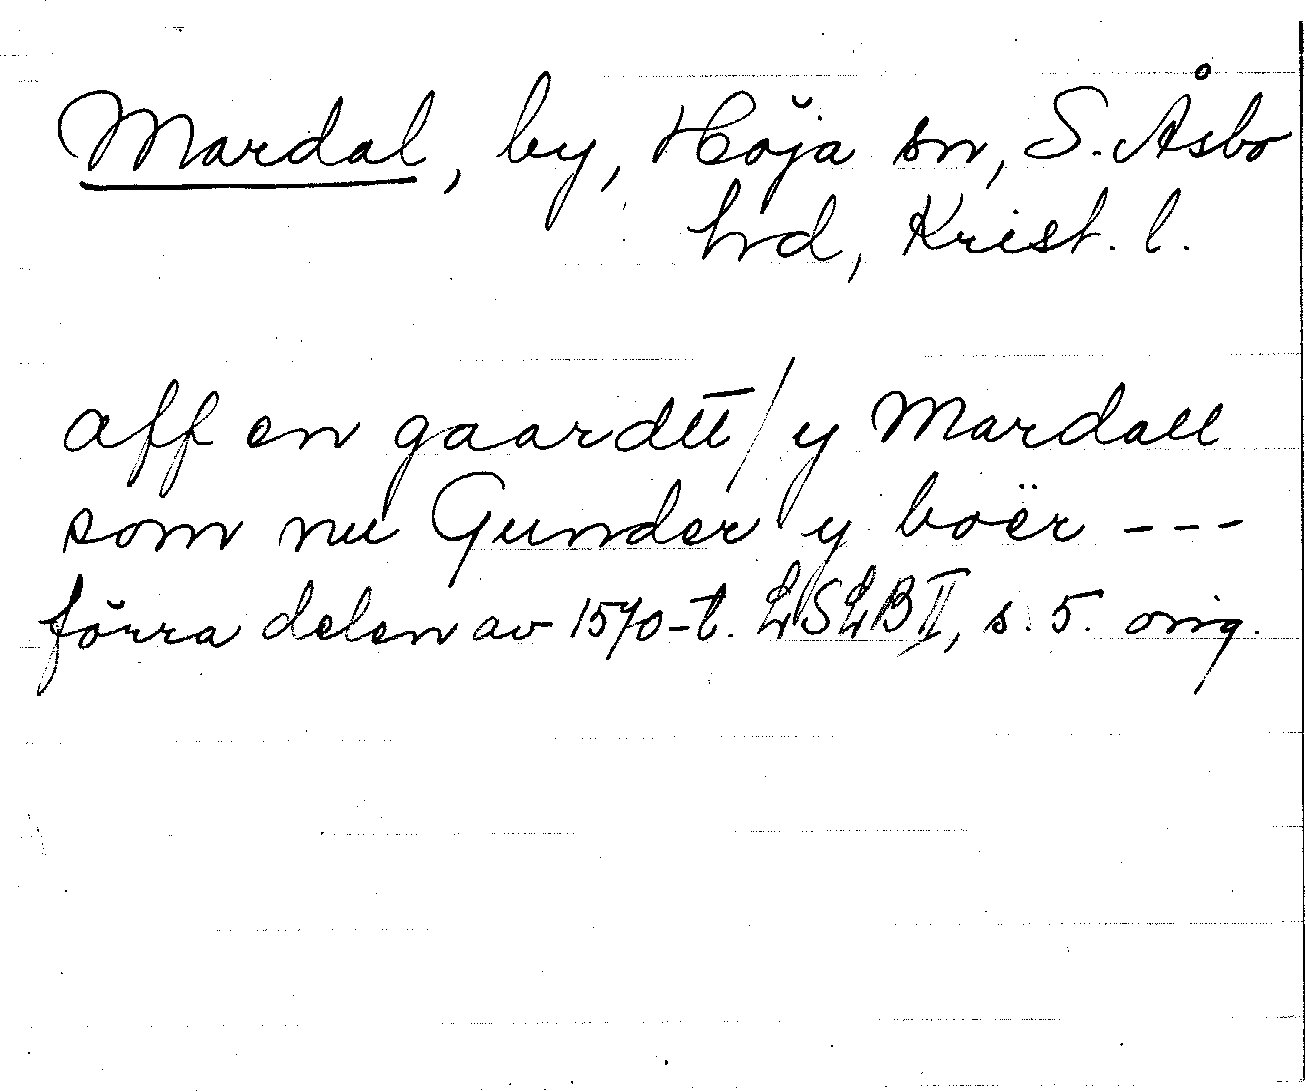 Mardal, by, Höja sn, S. Åsbo
hrd, Krist. l.
aff en gaardtt / y Mardall
som nu Gunder y boër ---
förra delen av 1570-t. LSLB II, s. 5. orig.